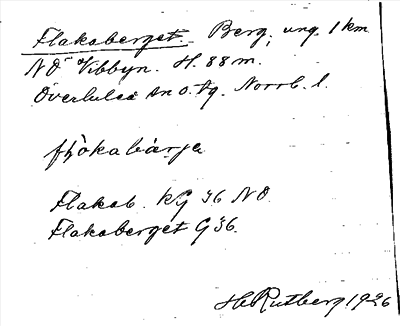 Flakaberget. Berg, ung. 1 km
NO Vibbyn. H. 88 m.
Överluleå sn o. tg. Norrb. l.
Flakab. KG 36 NO.
Flakaberget G 36.
H. Rutberg 1926